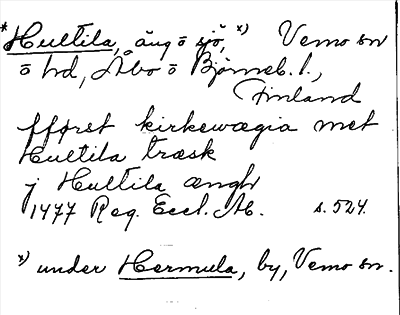 * Hultila, äng o sjö, x) Vemo sn
o hd, Åbo o Björneb. l.,
Finland
fførst kirkewægia met
Hultila træsk
j Hultila ængh
1477 Reg. Eccl. Ab. s. 524.
x) under Hermula, by, Vemo sn.